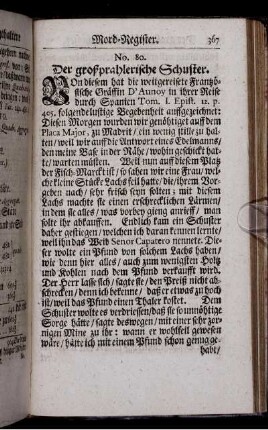 Mord-Register. 367
No. 80.
Der großprahlerische Schuster.
Von diesem hat die weitgereisete Frantzö-
sische Gräffin D'Aunoy in ihrer Reise
durch Spanien Tom. I. Epist. 12. p.
405. folgende lustige Begebenheit auffgezeichnet:
Diesen Morgen wurden wir genöhtiget auff dem
Placa Major, zu Madrit / ein wenig stille zu hal-
ten / weil wir auff die Antwort eines Edelmanns,
den meine Base in der Nähe / wohin geschickt hat-
te / warten müsten. Weil nun auff diesem Platz
der Fisch-Marckt ist / so sahen wir eine Frau / wel-
che kleine Stücke Lachs feil hatte / die / ihrem Vor-
geben nach / sehr frisch seyn solten; mit diesem
Lachs machte sie einen erschrecklichen Lärmen /
in dem sie alles / was vorbey gieng anrieff / man
solte ihr abkauffen. Endlich kam ein Schuster
daher gestiegen / welchen ich daran kennen lernte /
weil ihn das Weib Senor Capatero nennete. Die-
ser wolte ein Pfund von solchem Lachs haben /
wie denn hier alles / auch zum wenigsten Holtz
und Kohlen nach dem Pfund verkaufft wird.
Der Herr lasse sich / sagte sie / den Preiß nicht ab-
schrecken / denn ich bekenne / daß er etwas zu hoch
ist / weil das Pfund einen Thaler kostet. Dem
Schuster wolte es verdriessen / daß sie so unnöhtige
Sorge hätte / sagte deswegen / mit einer sehr zor-
nigen Mine zu ihr: wann er wohlfeil gewesen
wäre / hätte ich mit einem Pfund schon genug ge-
habt /